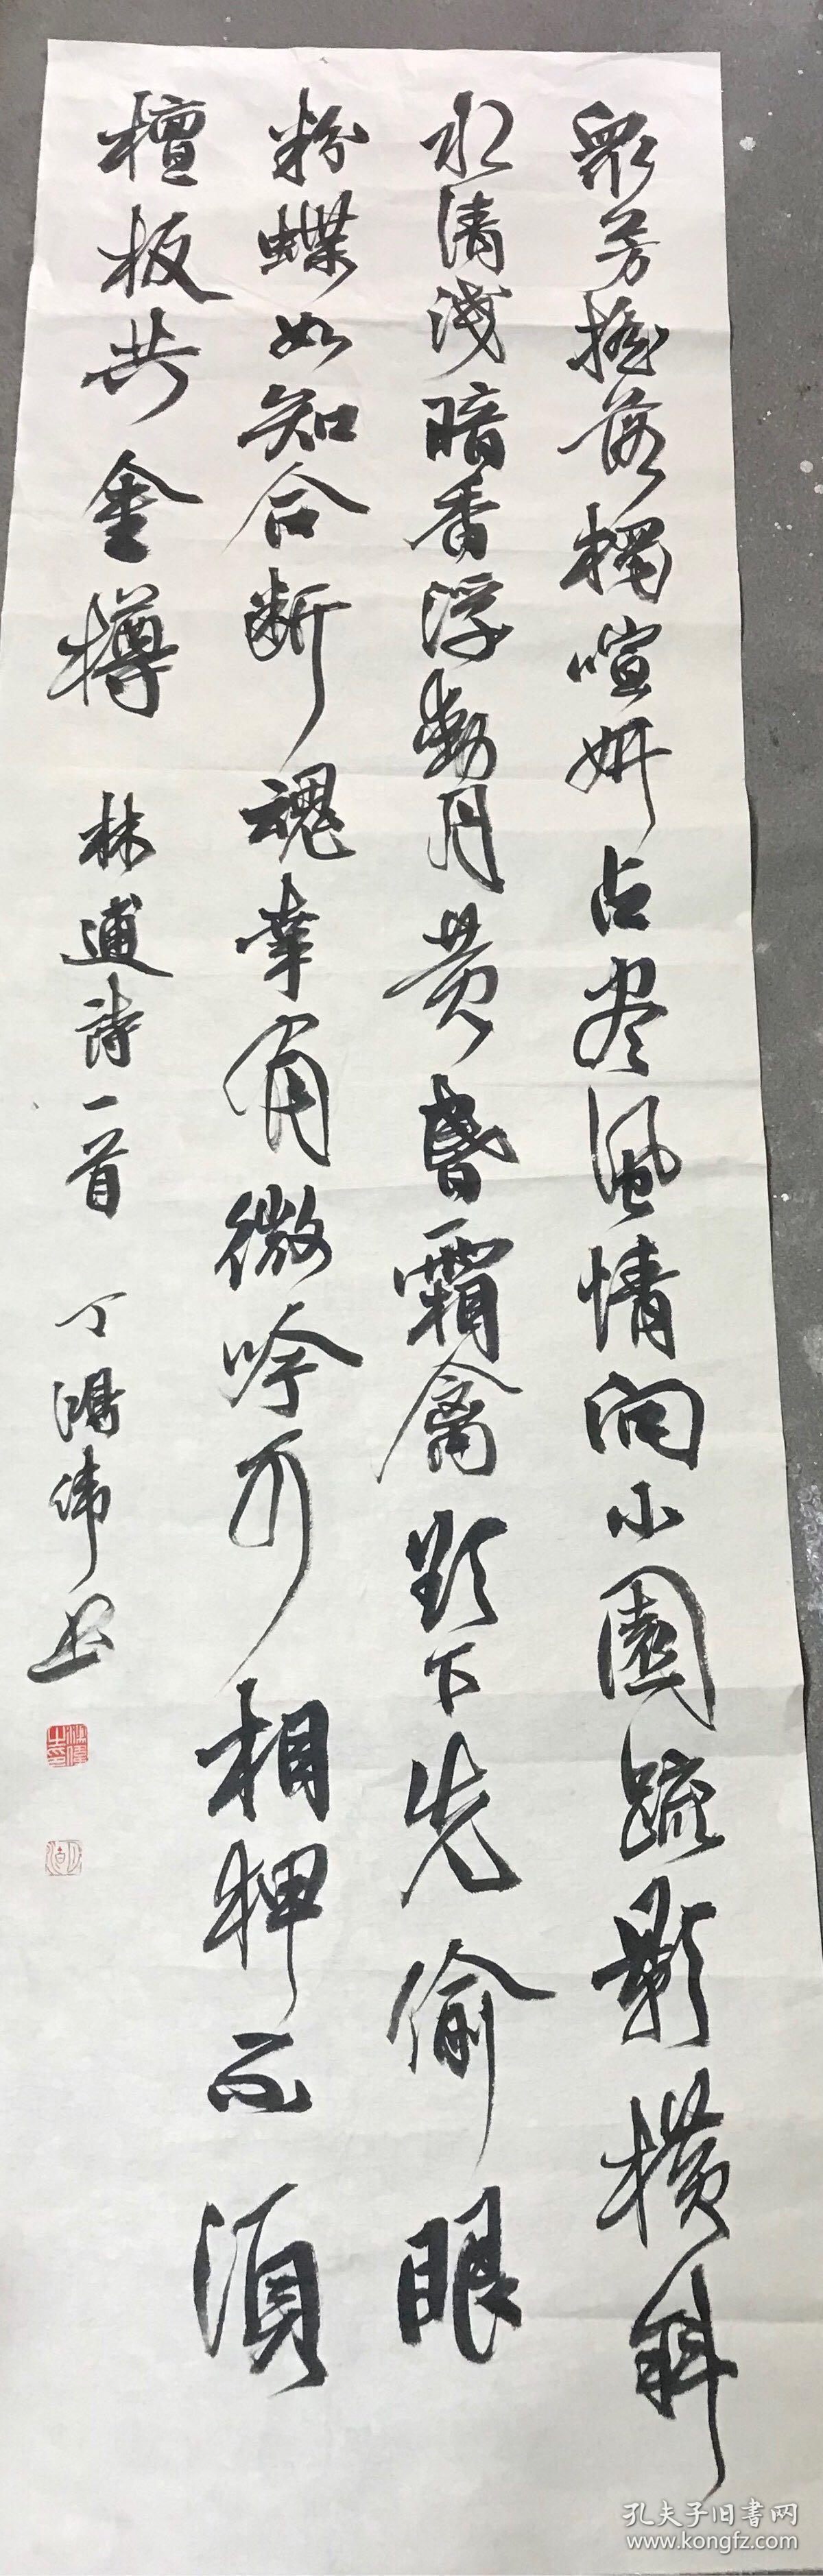 衆芳摇落独喧妍占尽風情向小園疏影横斜
水清浅暗香浮動月黄昏霜禽欲下先偷眼
粉蝶如知合断魂幸有微吟可相狎不須
檀板共金樽
林逋詩一首 丁鴻偉書
孔夫子旧書网
www.kongfz.com